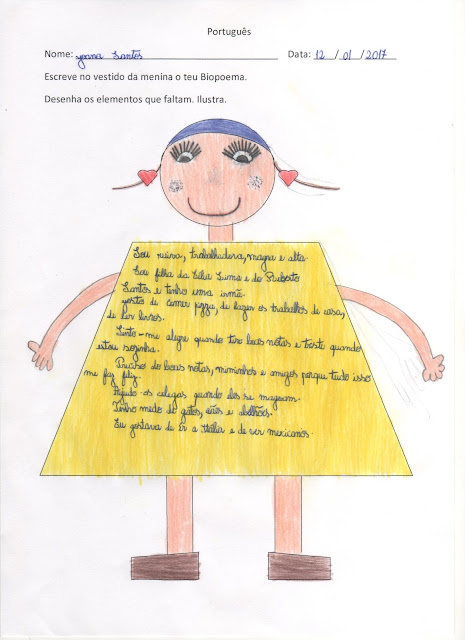 Português
Nome: Joana Santos Data: 12 / 01 / 2017
Escreve no vestido da menina o teu Biopoema.
Desenha os elementos que faltam. Ilustra.
Sou ruiva, trabalhadora, magra e alta.
Sou filha da Célia Luma e do Roberto
Santos e tenho uma irmã.
gosto de comer pizza, de fazer os trabalhos de casa,
de ler livros.
Sinto-me alegre quando tiro boas notas e triste quando
estou sozinha.
Preciso de boas notas, miminhos e amigos porque tudo isso
me faz feliz.
Ajudo os colegas quando eles se magoam.
Tenho medo de gatos, cães e abelhões.
Eu gostava de ir a Itália e de ver mexicanos.